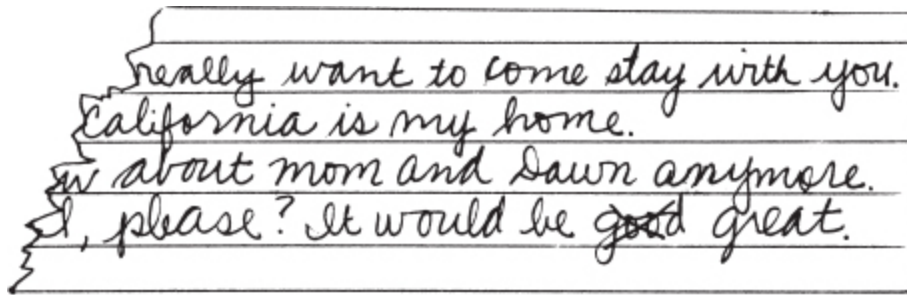 really want to come stay with you.
California is my home.
w about mom and Dawn anymore.
d, please? It would be good great.